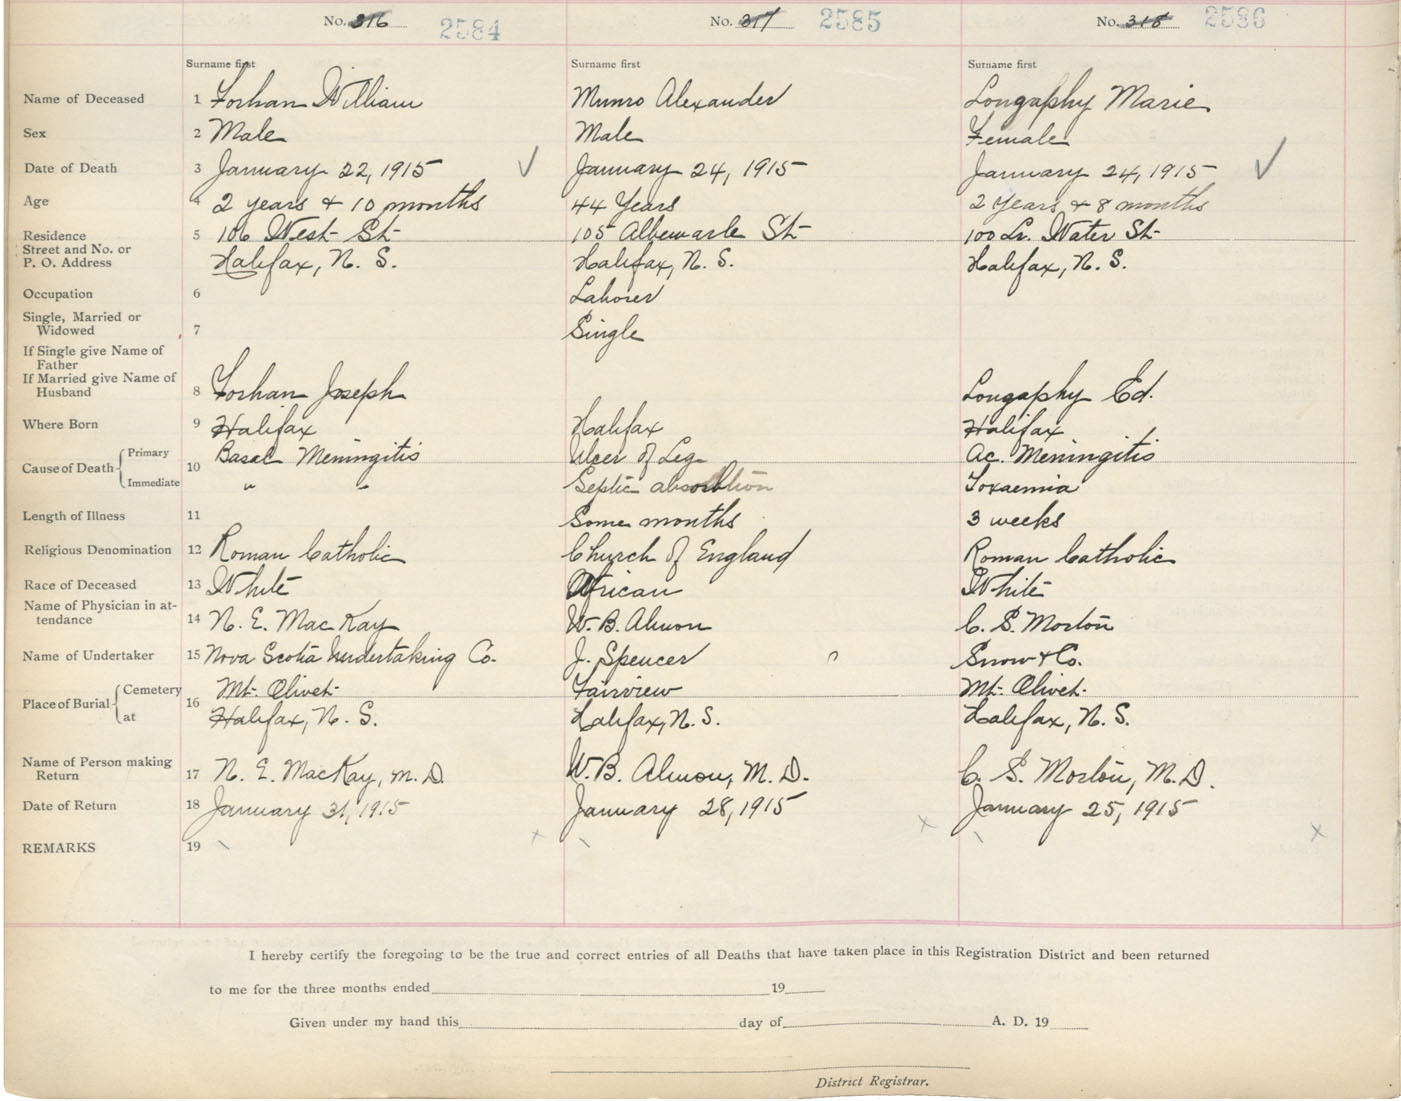 No. 316 2584 No. 317 2585 No. 318 2586
Surname first Surname first Surname first
Name of Deceased 1 Forhan William Munro Alexander Longaphy Marie
Sex 2 Male Male Female
Date of Death 3 January 22, 1915 January 24, 1915 January 24, 1915
Age 4 2 years & 10 months 44 Years 2 Years & 8 months
Residence 5 106 West St 105 Albemarle St 100 Lr. Water St
Street and No. or
P. O. Address Halifax, N. S. Halifax, N. S. Halifax, N. S.
Occupation 6 Laborer
Single, Married or
Widowed 7 Single
If Single give Name of
Father
If Married give Name of
Husband 8 Forhan Joseph Longaphy Ed.
Where Born 9 Halifax Halifax Halifax
Cause of Death Primary 10 Basal Meningitis Ulcer of Leg Ac. Meningitis
Immediate " " Septic absorbtion Toxaemia
Length of Illness 11 Some months 3 weeks
Religious Denomination 12 Roman Catholic Church of England Roman Catholic
Race of Deceased 13 White African White
Name of Physician in at-
tendance 14 N. E. MacKay W. B. Almon C. S. Morton
Name of Undertaker 15 Nova Scotia Undertaking Co. J. Spencer Snow & Co.
Place of Burial Cemetery 16 Mt. Olivet Fairview Mt. Olivet
at Halifax, N. S. Halifax, N. S. Halifax, N. S.
Name of Person making
Return 17 N. E. MacKay, M. D. W. B. Almon, M. D. C. S. Morton, M. D.
Date of Return 18 January 31, 1915 January 28, 1915 January 25, 1915
REMARKS 19
I hereby certify the foregoing to be the true and correct entries of all Deaths that have taken place in this Registration District and been returned
to me for the three months ended 19
Given under my hand this day of A. D. 19
District Registrar.